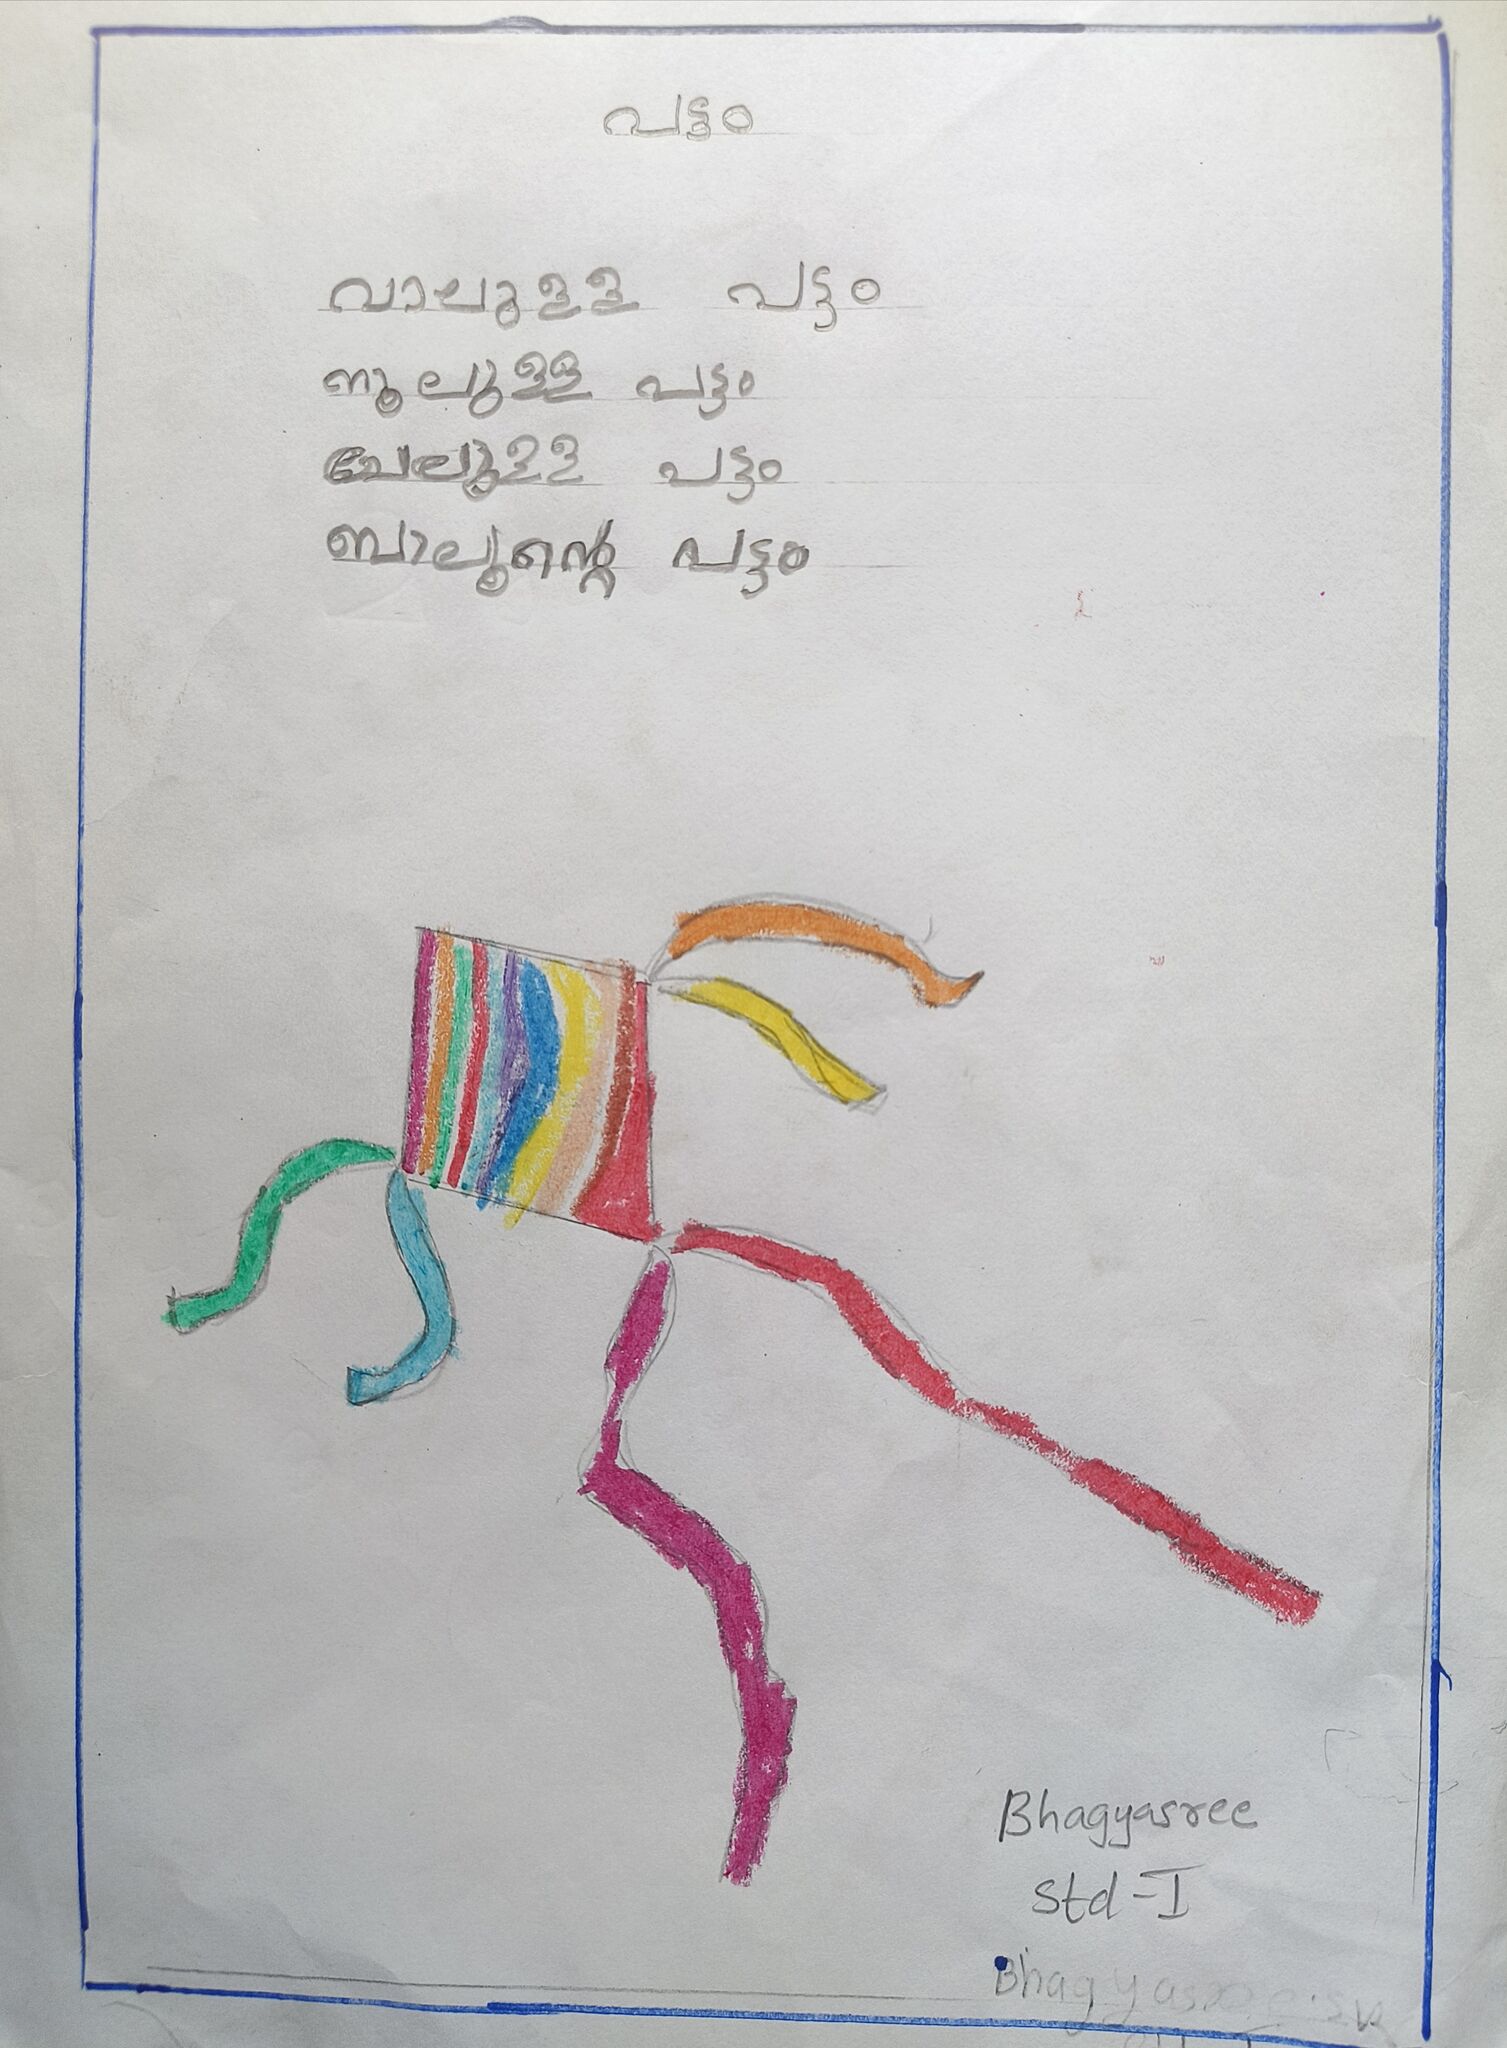 പട്ടം
വാലുള്ള പട്ടം
നൂലുള്ള പട്ടം
ചേലുള്ള പട്ടം
ബാലൂന്റെ പട്ടം
Bhagyasree
Std-I